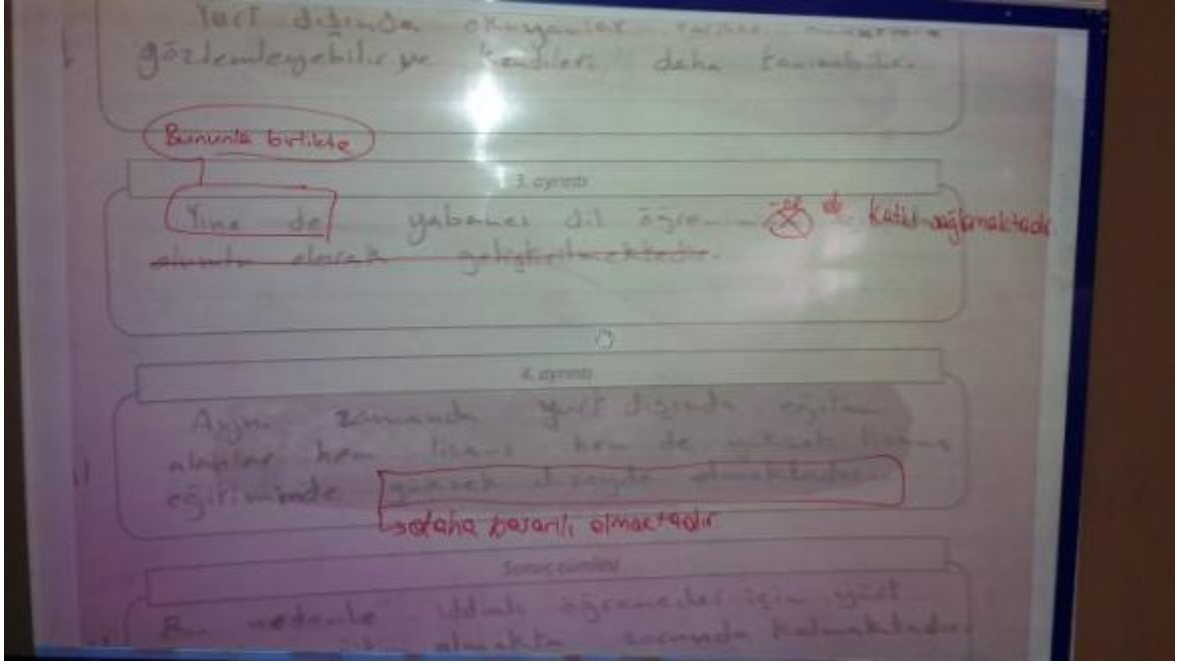 Yurt dışında okuyanlar
gözlemleyebilir ve kendileri daha
Bununla birlikte
3. ayrıntı
Yine de yabancı dil de katkı sağlamaktadır.
olarak geliştirilmektedir.
4. ayrıntı
Aynı zamanda yurt dışında eğitim
alanlar hem lisans hem de yüksek lisans
eğitiminde yüksek düzeyde olmaktadır
daha başarılı olmaktadır
Sonuç cümlesi
Bu nedenle iddialı öğrenciler için yurt
almakta zorunda kalmaktadır